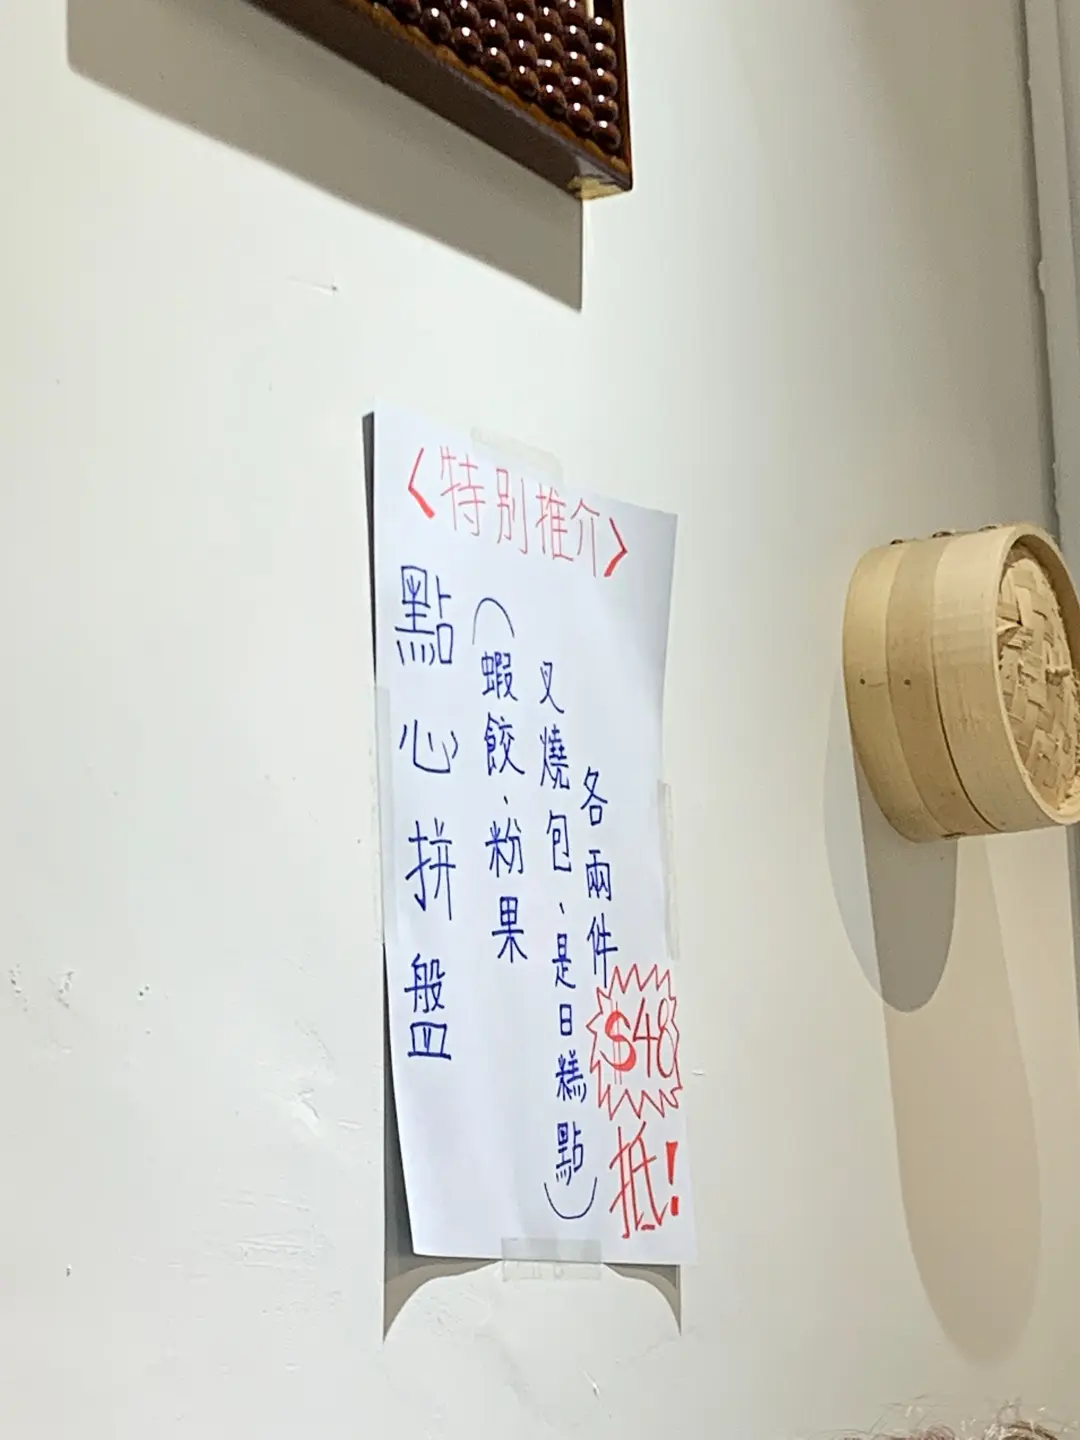 〈特別推介〉
點心拼盤
（蝦餃、粉果
叉燒包、是日糕點）
各兩件
$48
抵!